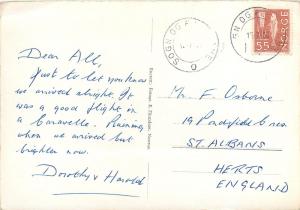 Dear All,
Just to let you know
we arrived alright. It
was a good flight in
a Caravelle. Raining
when we arrived but
brighter now.
Dorothy & Harold
SOGN OG
NORGE
55
Mr. F. Osborne
19
ST. ALBANS
HERTS
ENGLAND